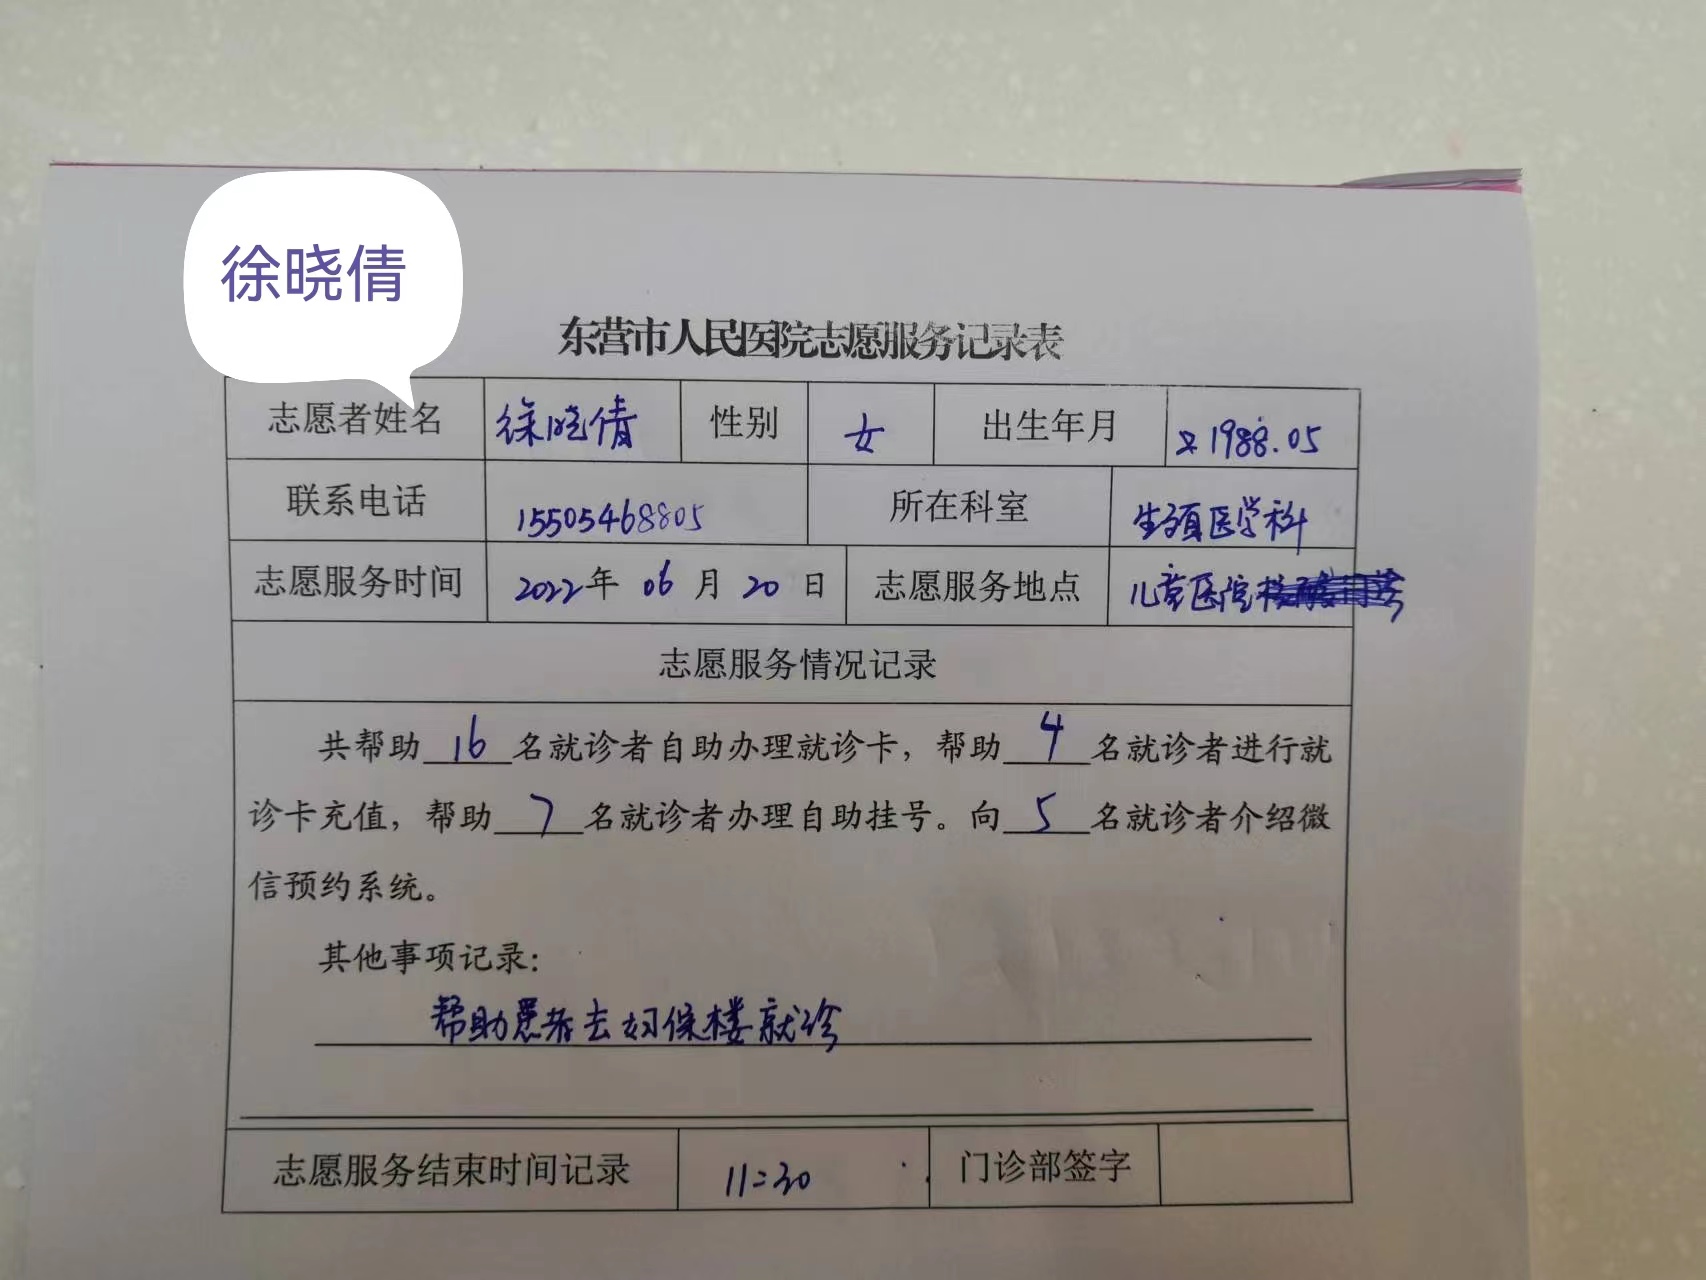 徐晓倩
东营市人民医院志愿服务记录表
志愿者姓名 徐晓倩 性别 女 出生年月 1988.05
联系电话 15505468805 所在科室 生殖医学科
志愿服务时间 2022年 06 月 20 日 志愿服务地点 儿童医院
志愿服务情况记录
共帮助 16 名就诊者自助办理就诊卡，帮助 4 名就诊者进行就
诊卡充值，帮助 7 名就诊者办理自助挂号。向 5 名就诊者介绍微
信预约系统。
其他事项记录：
帮助患者去妇保楼就诊
志愿服务结束时间记录 11:30 门诊部签字